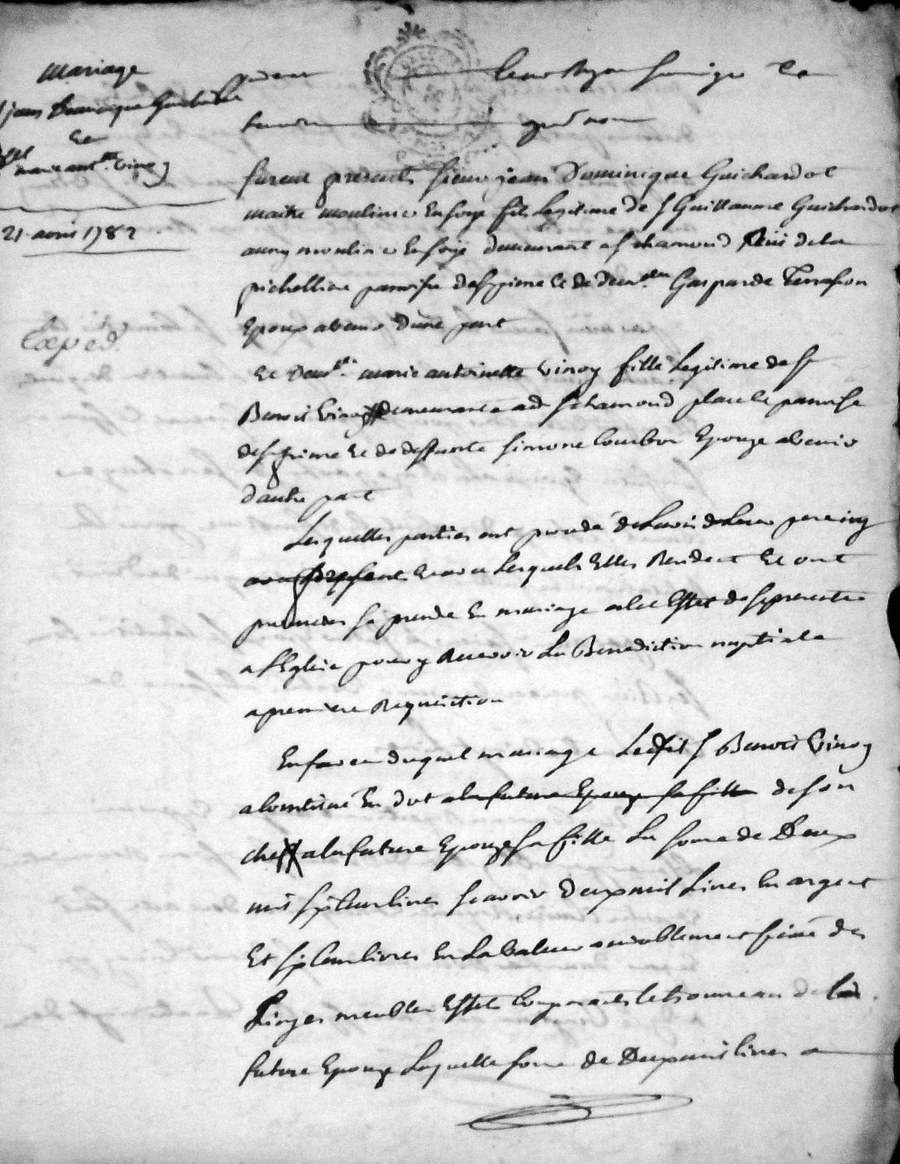 Mariage
jean Dominique Guichardot
Et
marie ant.tte Vinoy
21 avril 1782
Exped.
pardevant le no Royal soussigné
furent presents sieur jean Dominique Guichardot
maitre moulinier En soye fils Legitime de s.r Guillaume Guichardot
aussy moulinier En soye demeurant a s.t chamond Rüe de la
paroisse de Et de dem.lle Gasparde Terrasson
Epoux avenir d'une part
Et Dem.lle marie antoinette Vinoy fille Legitime de s.r
Benoit Vinoy demeurante a s.t chamond place paroisse
Et de deffunte simone Courbon Epouze avenir
d'autre part
Lesquelles parties ont procedé de Lavis de Leurs peres icy
presents Lesquels Elles Rendent Et ont
promis se prendre En mariage a cet Effet de se presenter
a l'Eglise pour y Recevoir La Benediction nuptiale
a premiere Requisition
En faveur duquel mariage Ledit s.r Benoit Vinoy
a constitué En dot a la future Epouze sa fille de son
chef a la future Epouze sa fille La some de Deux
mil sept cent livres scavoir deux mil Livres En argent
Et sept cent livres En La valeur amiablement fixée des
Linges meubles Effets Composants le trousseau de lad.
future Epouze Laquelle some de Deux mil livres